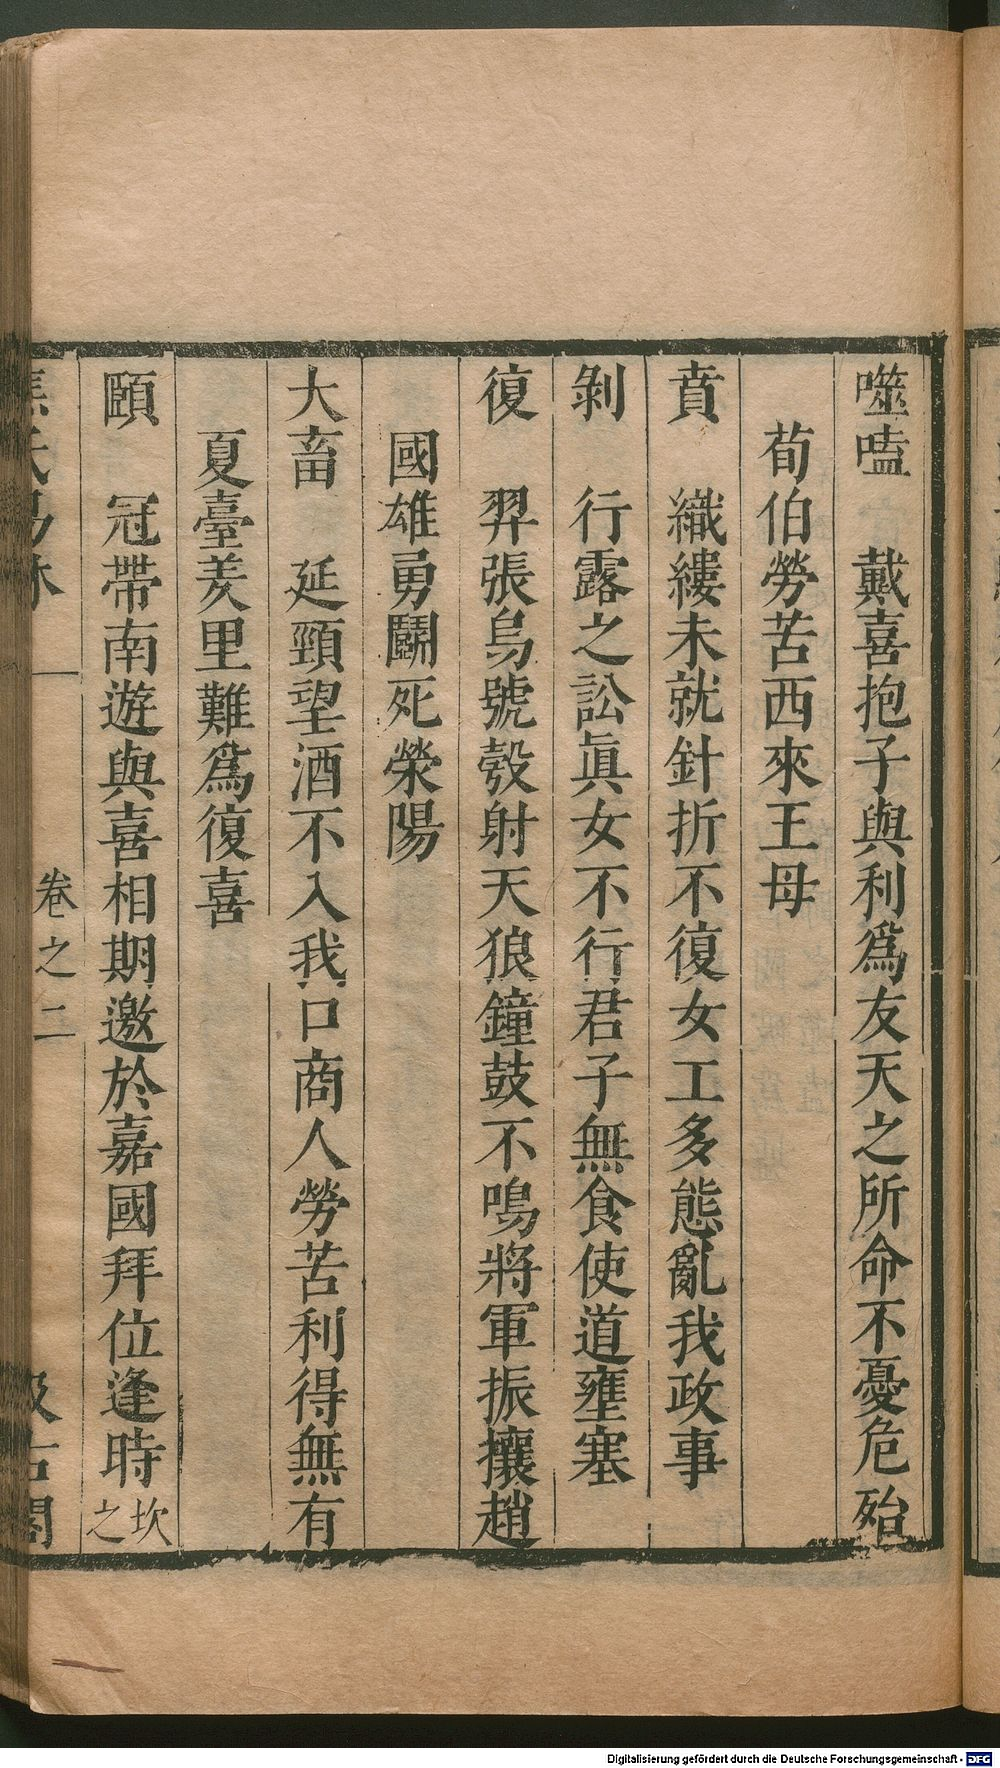 噬嗑　戴喜抱子與利爲友天之所命不憂危殆
荀伯勞苦西來王母
賁　織縷未就針折不復女工多態亂我政事
剝　行露之訟眞女不行君子無食使道壅塞
復　羿張烏號彀射天狼鐘鼓不鳴將軍振攘趙
國雄勇鬬死滎陽
大畜　延頸望酒不入我口商人勞苦利得無有
夏臺羑里難爲復喜
頤　冠帶南遊與喜相期邀於嘉國拜位逢時坎之
卷之二
Digitalisierung gefördert durch die Deutsche Forschungsgemeinschaft - DFG